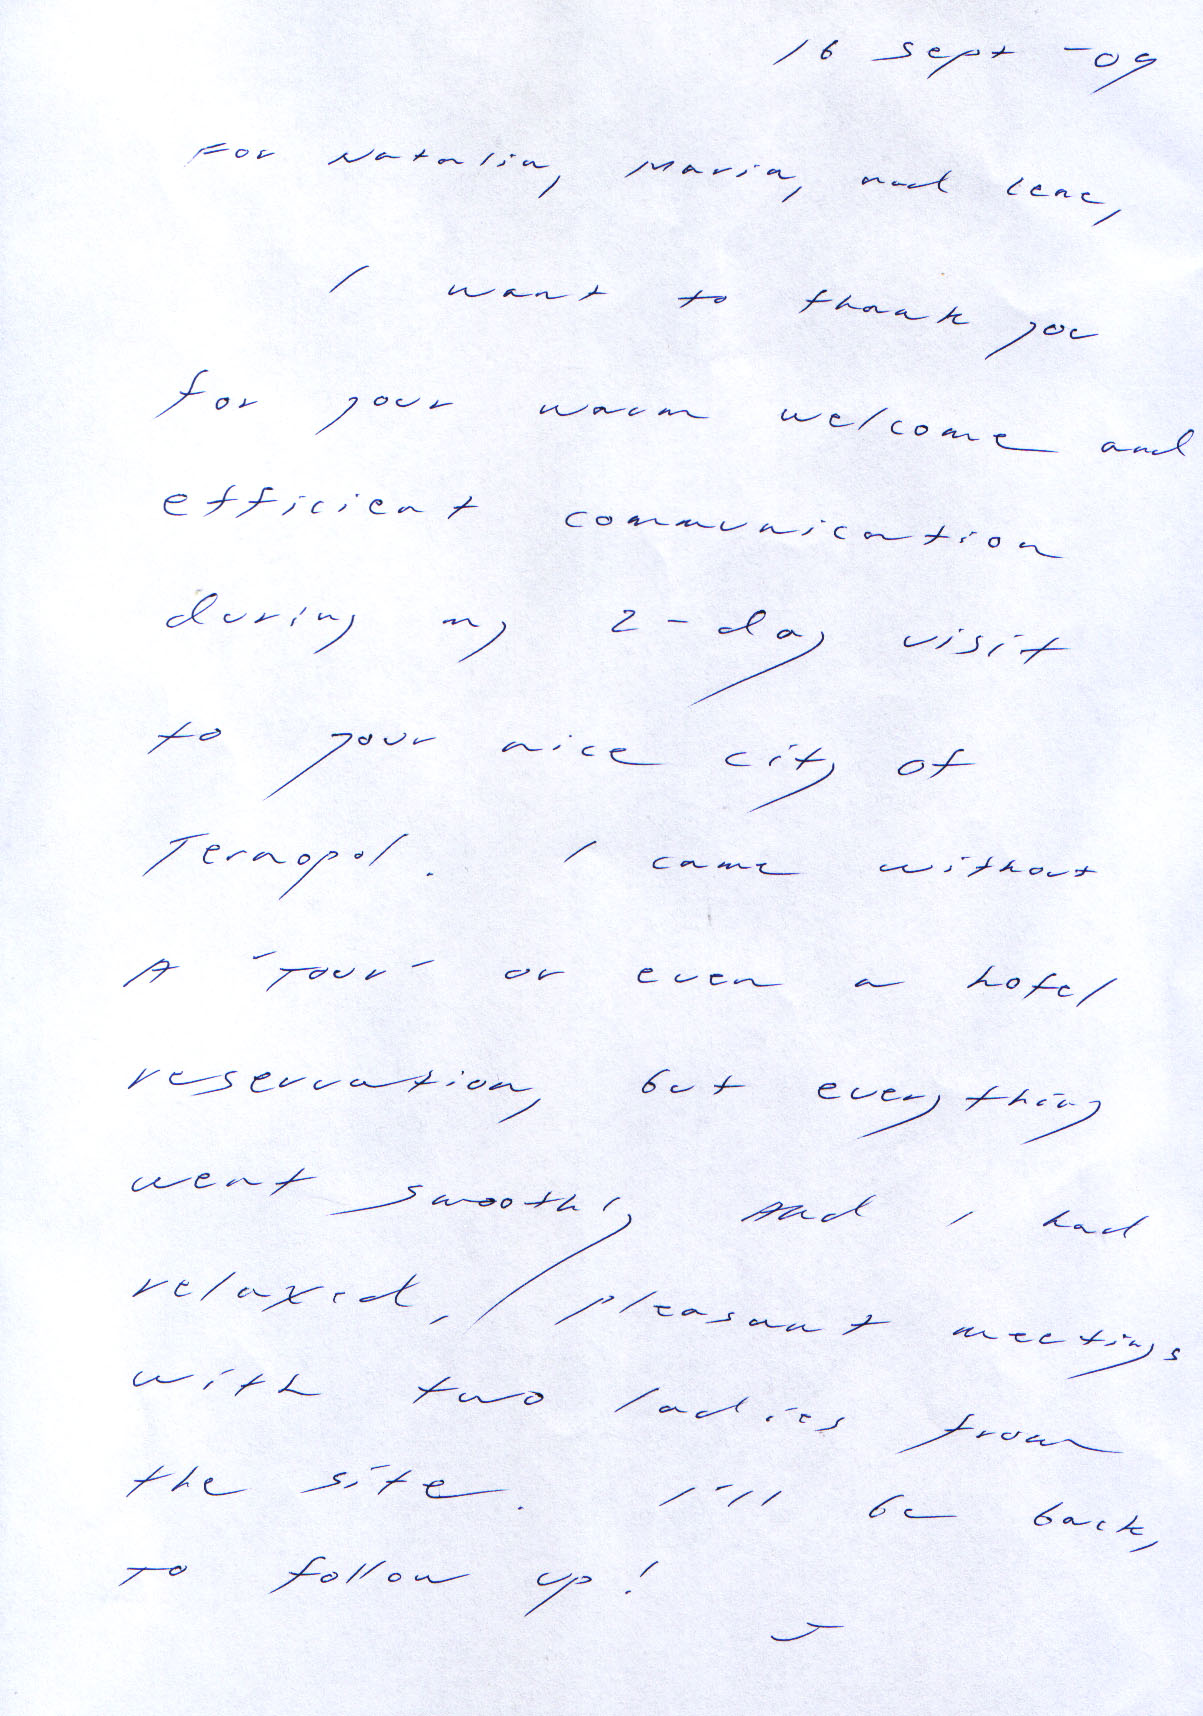 16 Sept -09
For Natalia, Maria, and Lene,
I want to thank you
for your warm welcome and
efficient communication
during my 2-day visit
to your nice city of
Ternopol. I came without
A "Tour" or even a hotel
reservation, but everything
went smoothly And I had
relaxed, pleasant meetings
with two ladies from
the site. I'll be back,
To follow up!
J